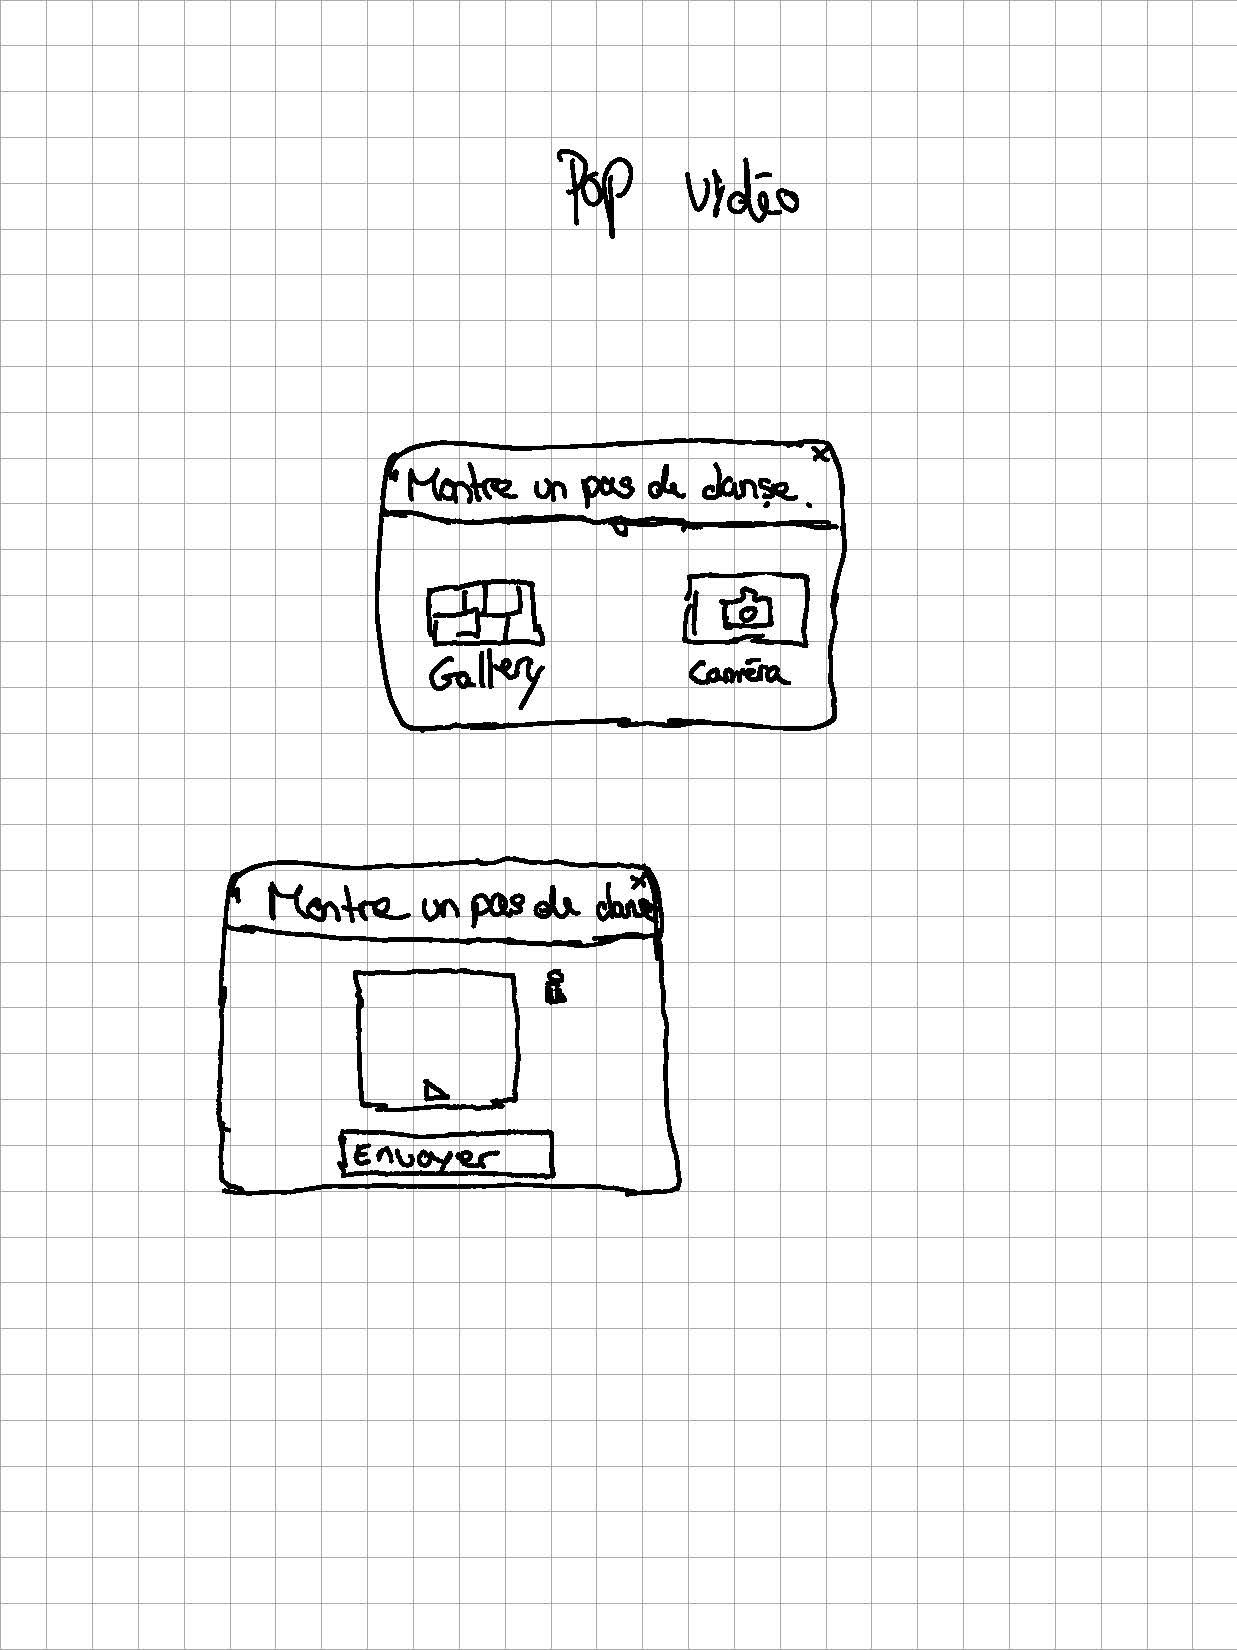 Pop vidéo
x
Montre un pas de danse.
Gallery
Caméra
x
Montre un pas de danse
Envoyer